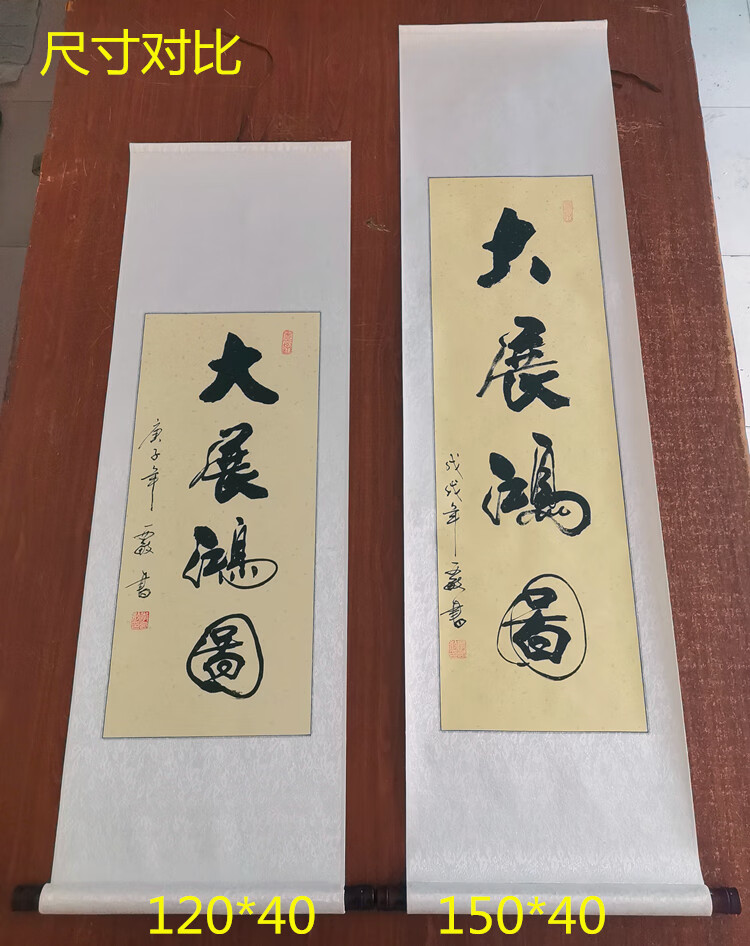 尺寸对比
大展鸿图
庚子年
書
大展鸿图
戊戌年
書
120*40
150*40